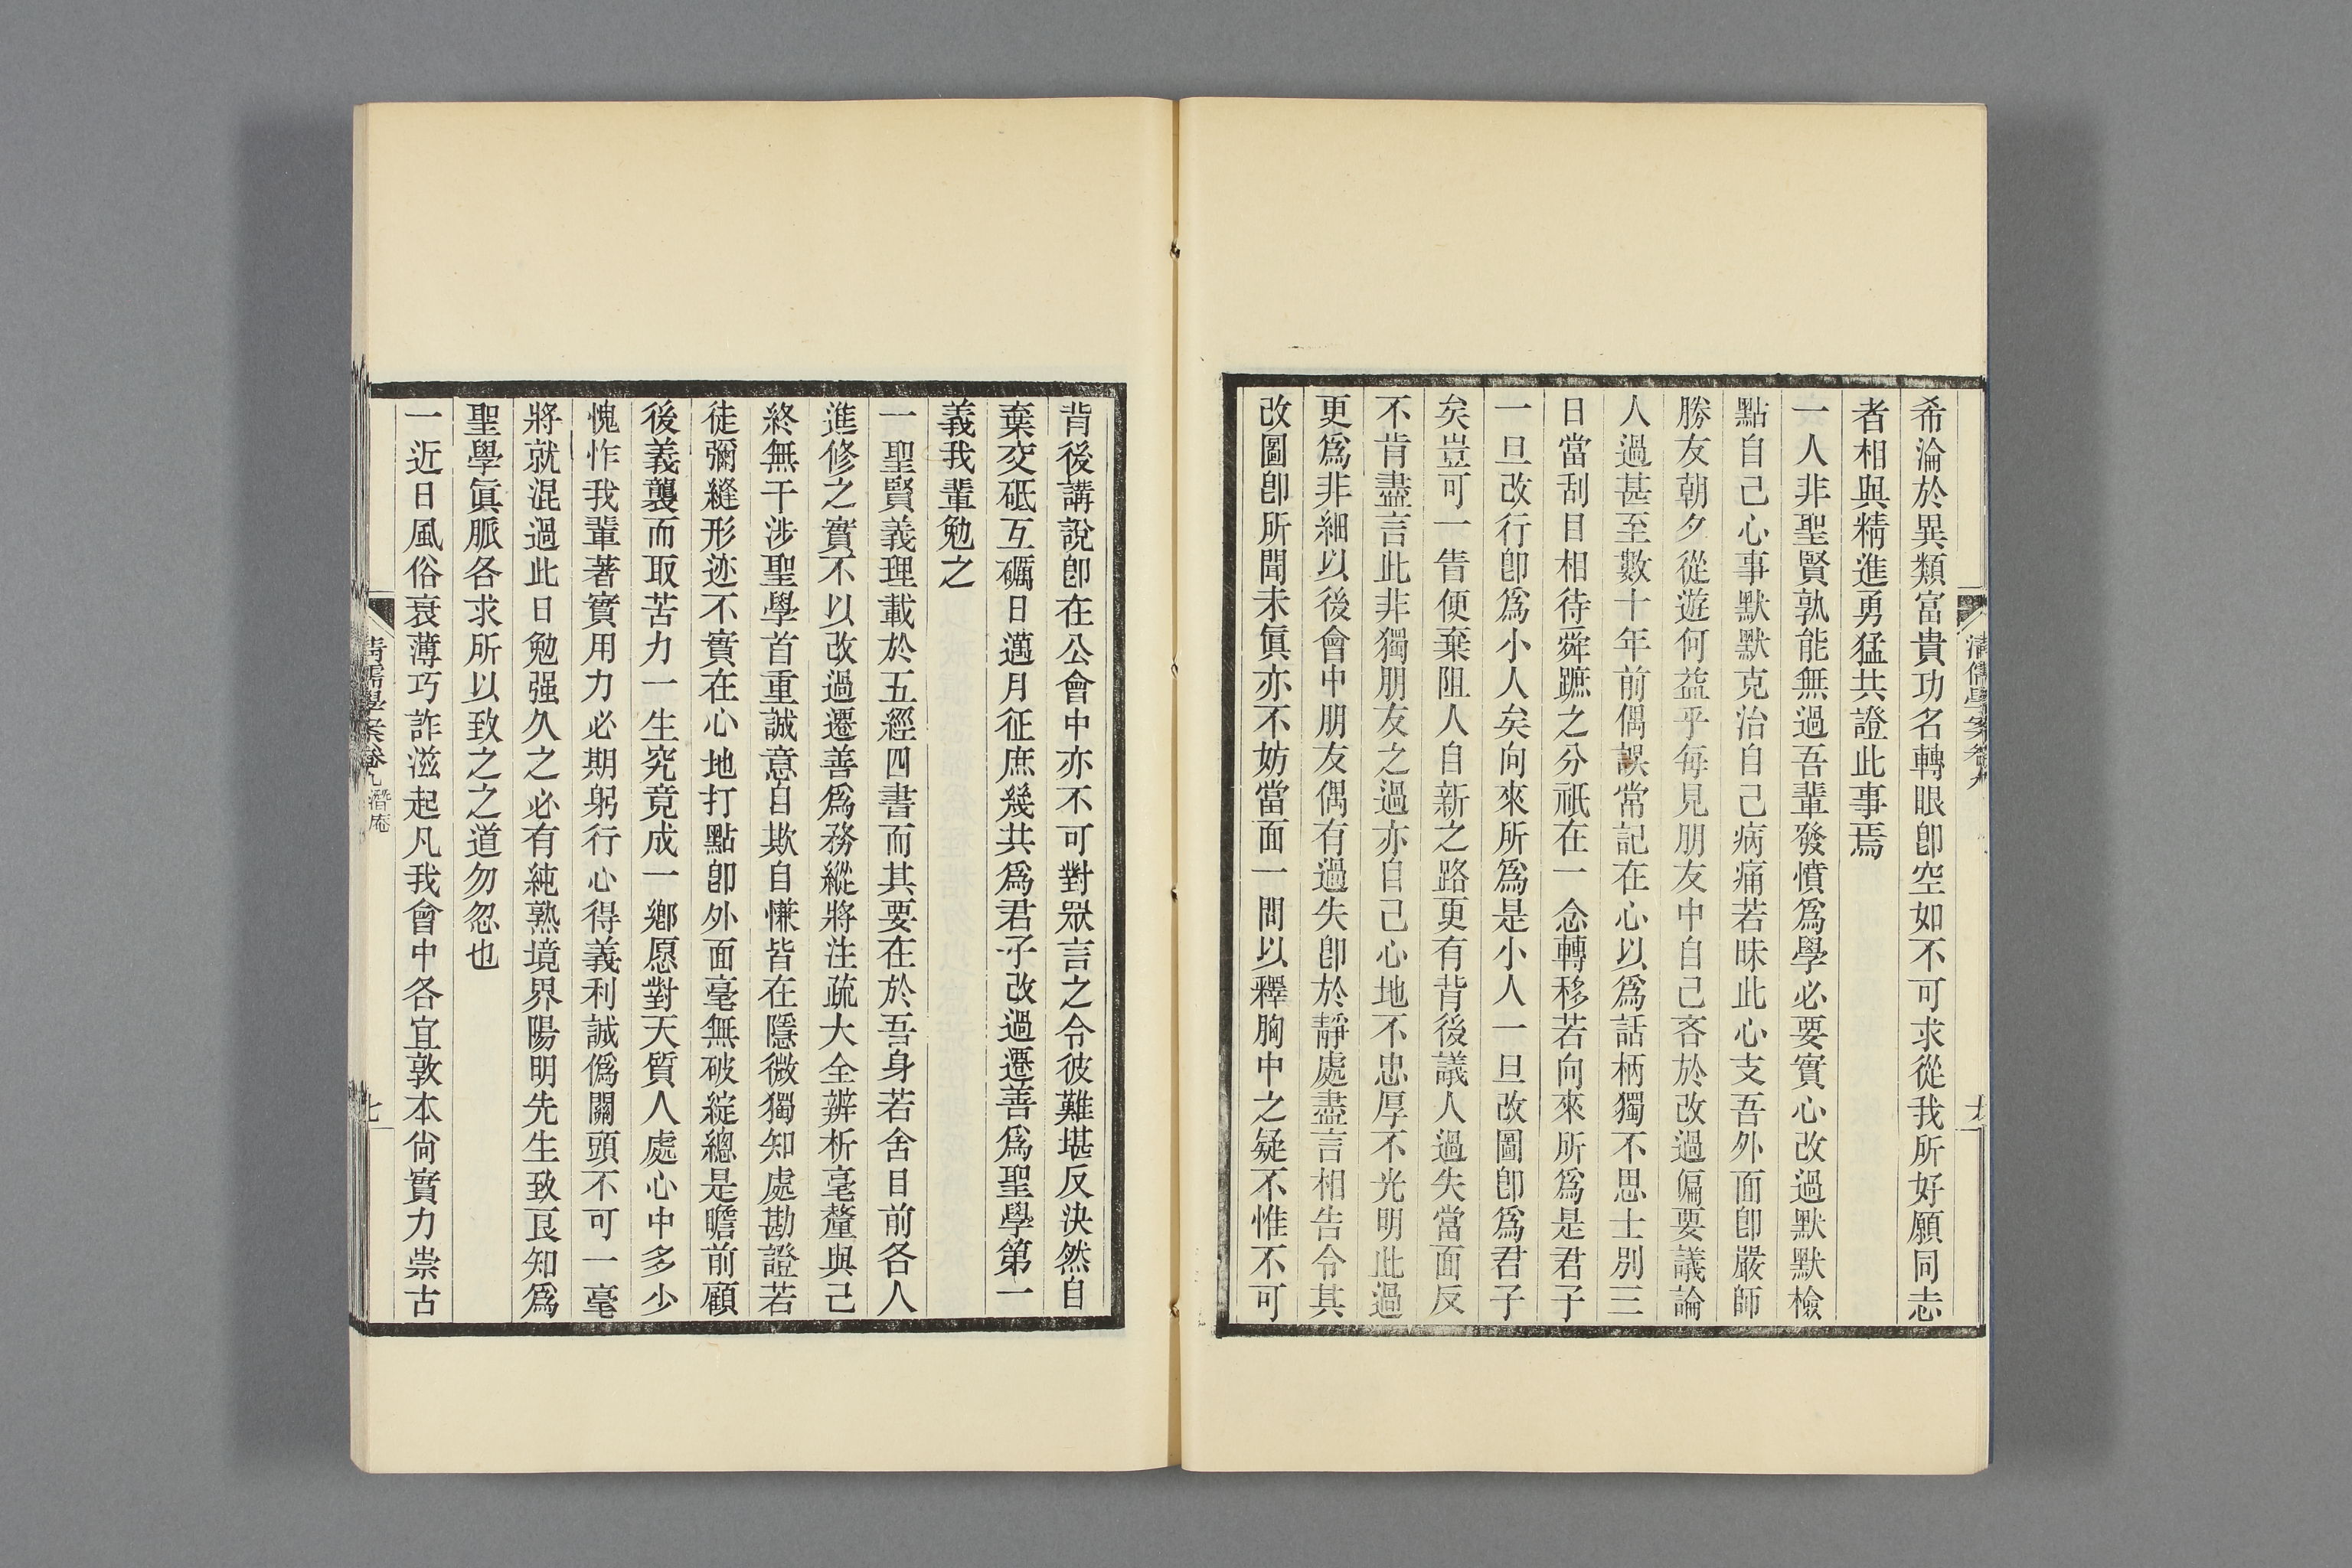 希淪於異類富貴功名轉眼卽空如不可求從我所好願同志
者相與精進勇猛共證此事焉
一人非聖賢孰能無過吾輩發憤爲學必要實心改過默默檢
點自己心事默默克治自己病痛若昧此心支吾外面卽嚴師
勝友朝夕從遊何益乎每見朋友中自己吝於改過偏要議論
人過甚至數十年前偶誤常記在心以爲話柄獨不思士別三
日當刮目相待舜蹠之分祇在一念轉移若向來所爲是君子
一旦改行卽爲小人矣向來所爲是小人一旦改圖卽爲君子
矣豈可一眚便棄阻人自新之路更有背後議人過失當面反
不肯盡言此非獨朋友之過亦自己心地不忠厚不光明此過
更爲非細以後會中朋友偶有過失卽於靜處盡言相告令其
改圖卽所聞未眞亦不妨當面一問以釋胸中之疑不惟不可
背後講說卽在公會中亦不可對眾言之令彼難堪反決然自
棄交砥互礪日邁月征庶幾共爲君子改過遷善爲聖學第一
義我輩勉之
一聖賢義理載於五經四書而其要在於吾身若舍目前各人
進修之實不以改過遷善爲務縱將注疏大全辨析毫釐與己
終無干涉聖學首重誠意自欺自慊皆在隱微獨知處勘證若
徒彌縫形迹不實在心地打點卽外面毫無破綻總是瞻前顧
後義襲而取苦力一生究竟成一鄕愿對天質人處心中多少
愧怍我輩著實用力必期躬行心得義利誠僞關頭不可一毫
將就混過此日勉强久之必有純熟境界陽明先生致良知爲
聖學眞脈各求所以致之之道勿忽也
一近日風俗衰薄巧詐滋起凡我會中各宜敦本尙實力崇古
清儒學案卷九 潛庵
七